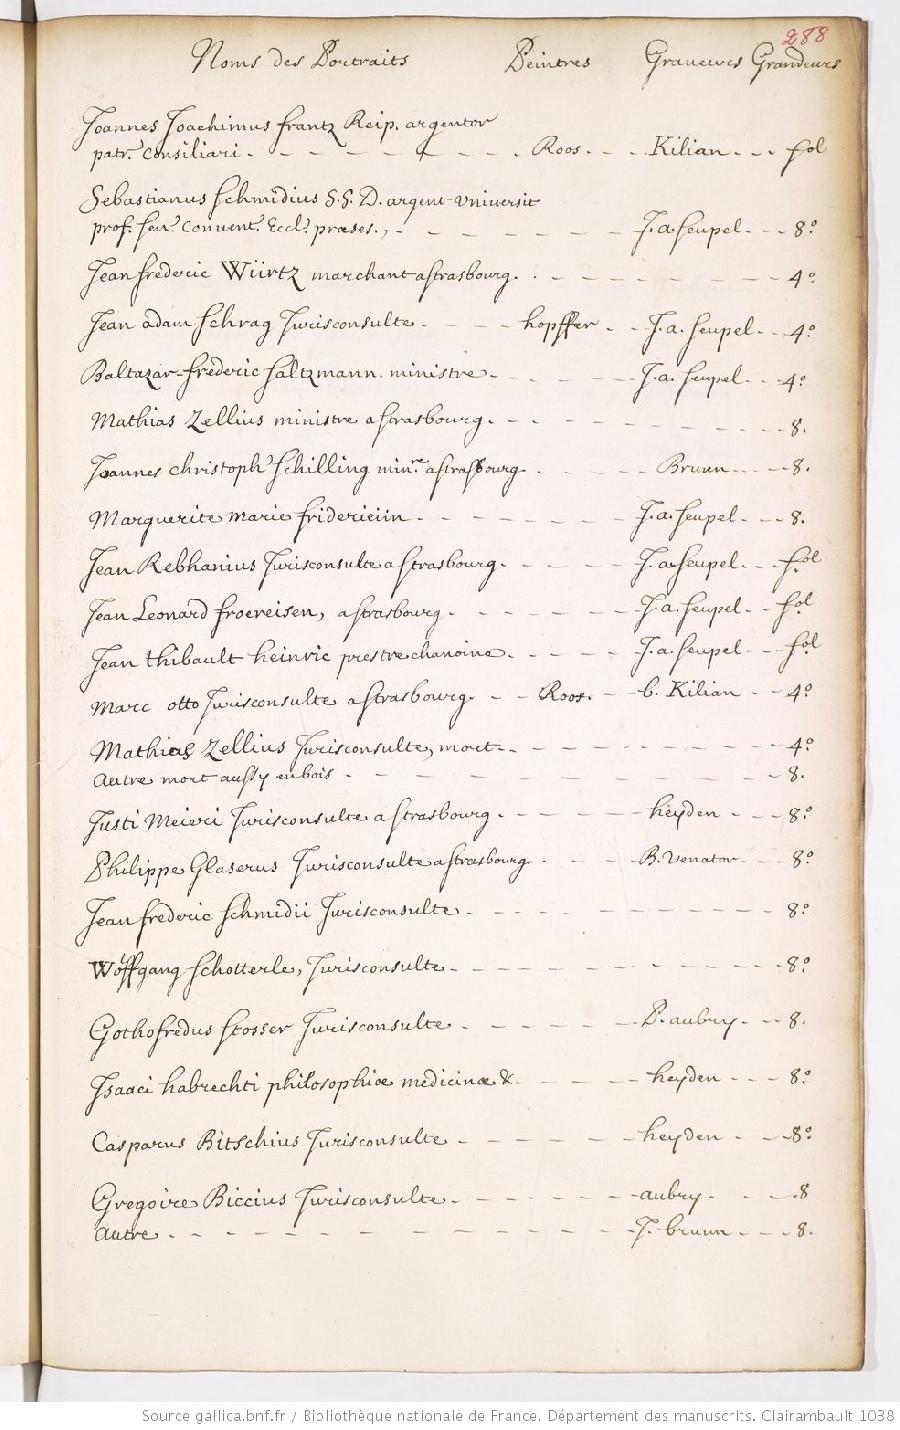 288
Noms des Portraits Peintres Graveurs Grandeurs
Joannes Joachimus frantz Reip. argentor
patr. Consiliari. - - - - - - - - Roos. - - Kilian - - - fol
Sebastianus Schmidius S.S. D. argent. Universit
prof. Sen.r Convent. Eccl. præses., - - - - - - J. a. Seupel - - - 8.º
Jean frederic Würtz marchant a strasbourg. - - - - - - - 4.º
Jean adam Schrag Jurisconsulte - - - - hopffer - - J. a. Seupel - - 4.º
Baltazar-frederic Saltzmann ministre - - - - - J. a. Seupel - - 4.º
Mathias Zellius ministre a strasbourg - - - - - - - - 8.
Joannes christoph Schilling min.re a strasbourg - - - - Bruun - - - 8.
Marguerite marie fridericiin - - - - - - J. a. Seupel - - - 8.
Jean Rebhanius Jurisconsulte a strasbourg - - - - - J. a. Seupel - - fol
Jean Leonard froereisen, a strasbourg - - - - - - J. a. Seupel - - fol
Jean thibault heinric prestre chanoine - - - - J. a. Seupel - - fol
Marc otto Jurisconsulte a strasbourg - - Roos. - b. Kilian - - 4.º
Mathias Zellius Jurisconsulte, mort - - - - - - - - 4.º
Autre mort aussy en bois - - - - - - - - - - 8.
Justi Meieri Jurisconsulte a strasbourg - - - - - heyden - - - 8.º
Philippe Glaserus Jurisconsulte a strasbourg - - - - B. Venator - - 8.º
Jean frederic Schmidii Jurisconsulte - - - - - - - - - 8.º
Wolffgang Schotterle, Jurisconsulte - - - - - - - - - 8.º
Gothofredus Stosser Jurisconsulte - - - - - - P. aubry - - 8.
Isaaci habrechti philosophiæ medicinæ & - - - - heyden - - - 8.º
Casparus Bitschius Jurisconsulte - - - - - - heyden - - - 8.º
Gregoire Biccius Jurisconsulte - - - - - - aubry - - - 8
Autre - - - - - - - - - - - J. bruun - - - 8.
Source gallica.bnf.fr / Bibliothèque nationale de France. Département des manuscrits. Clairambault 1038